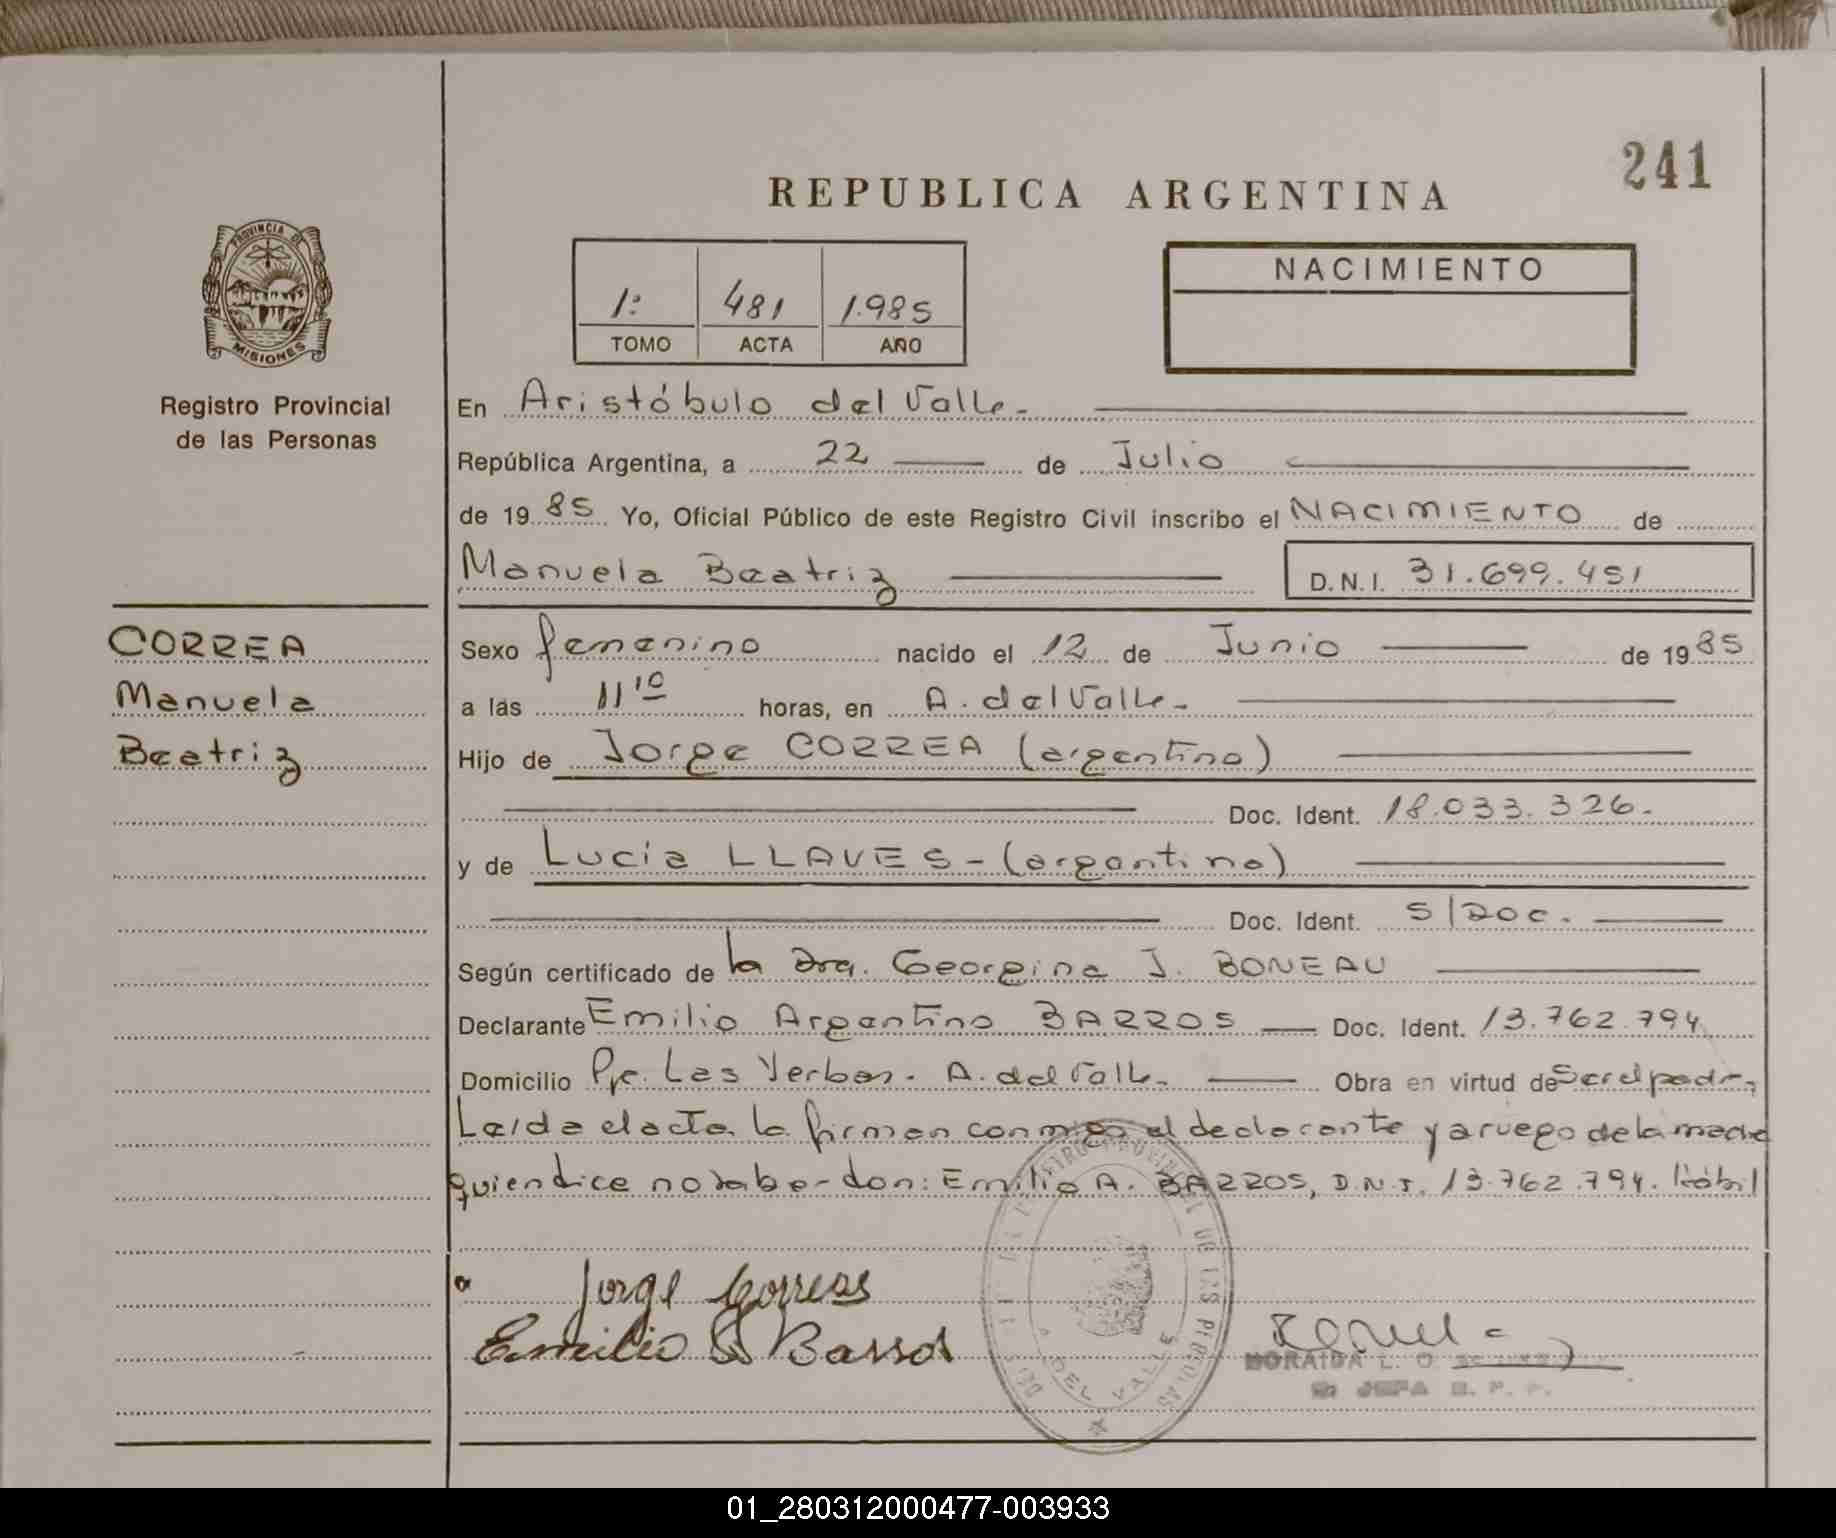 241
REPUBLICA ARGENTINA
PROVINCIA DE
MISIONES
Registro Provincial
de las Personas
1: 481 1.985
TOMO ACTA AÑO
NACIMIENTO
En Aristóbulo del Valle.
República Argentina, a 22 de Julio
de 19 85 Yo, Oficial Público de este Registro Civil inscribo el NACIMIENTO de
Manuela Beatriz D.N.I. 31.699.451
CORREA
Manuela
Beatriz
Sexo femenino nacido el 12 de Junio de 19 85
a las 11 10 horas, en A. del Valle.
Hijo de Jorge CORREA (argentino)
Doc. Ident. 18.033.326.
y de Lucía LLAVES - (argentina)
Doc. Ident. S/Doc.
Según certificado de la Dra. Georgina J. BONEAU
Declarante Emilio Argentino BARROS Doc. Ident. 13.762.794
Domicilio Pje. Las Yerbas. A. del Valle. Obra en virtud de Ser el padre,
Leída el acta la firman conmigo el declarante y a ruego de la madre
quien dice no saber don: Emilio A. BARROS, D.N.I. 13.762.794. Hábil
Jorge Correa
Emilio A Barros
DEL VALLE
MORAIDA L. O
JEFA R. P. P.
01_280312000477-003933